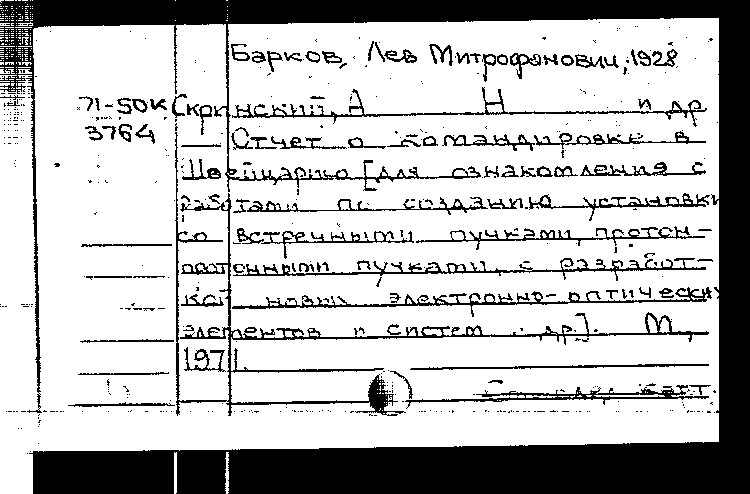 Барков, Лев Митрофанович, 1928
71-50к Скринский, А Н и др
3764 Отчет о командировке в
Швейцарию [для ознакомления с
работами по созданию установки
со встречными пучками, протон-
протонными пучками, с разработ-
кой новых электронно-оптических
элементов и систем и др.]. М.,
1971.
карт.